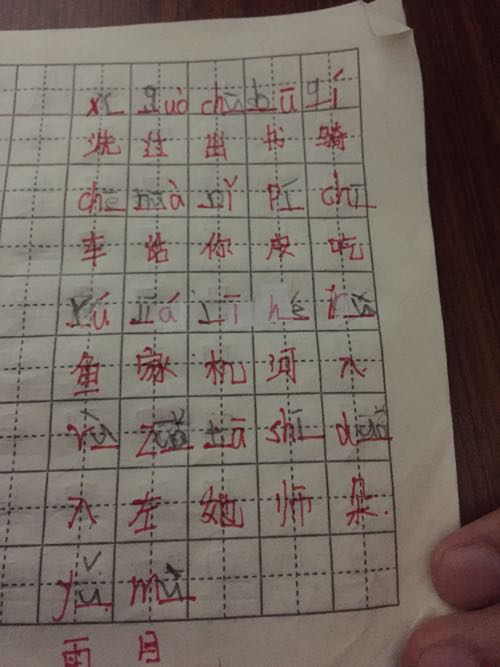 guò chū shū qí
洗 过 出 书 骑
chē huà nǐ pí chī
车 话 你 皮 吃
yú jiā jī hé rù
鱼 家 机 河 入
rù zuǒ tā shī duǒ
入 左 她 师 朵
yǔ mù
雨 目